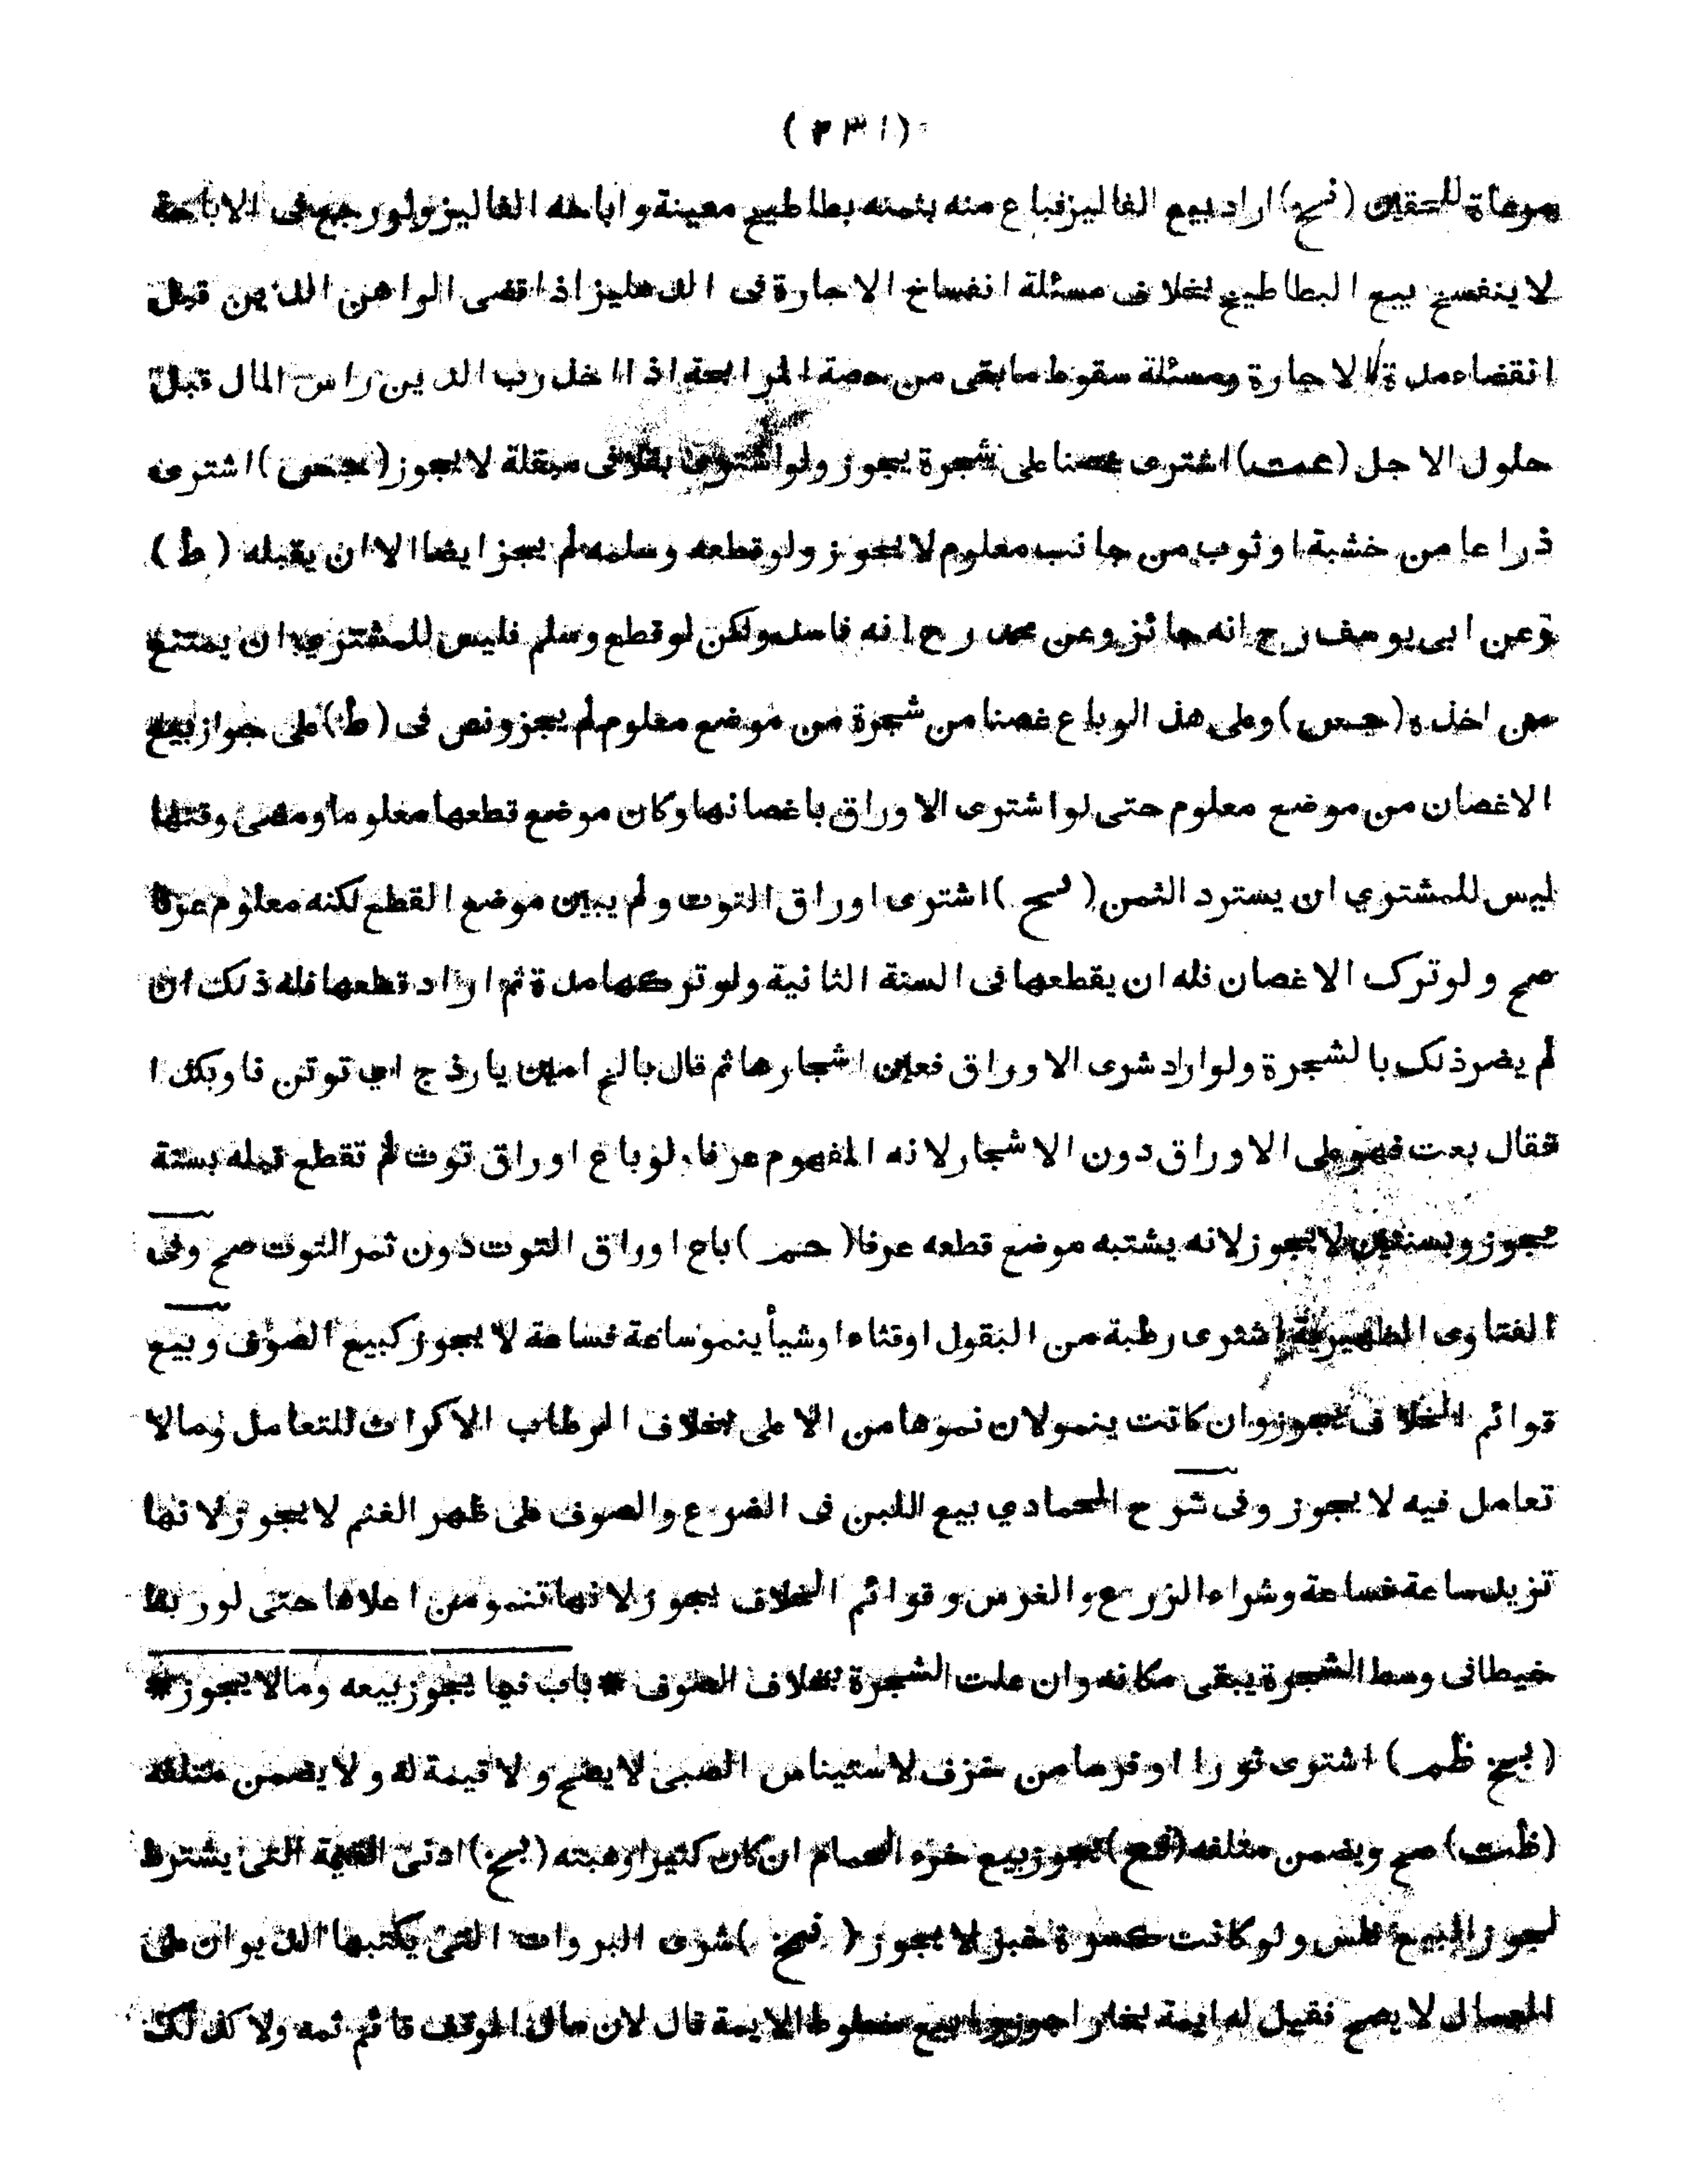 (٢٣١)
مرعاة للحقين (فح) اراد بيع الفاليز فباع منه بثمنه بطاطيخ معينة واباحه الفاليز ولو رجع فى الاباحة
لا ينفسخ بيع البطاطيخ بخلاف مسئلة انفساخ الاجارة فى الدهليز اذا قضى الراهن الدين قبل
انقضاء مدة الاجارة ومسئلة سقوط ما بقى من حصة المرابحة اذا اخذ رب الدين راس المال قبل
حلول الاجل (عت) اشترى غصنا على شجرة يجوز ولو اشترى بقلا فى مبقلة لا يجوز (جس) اشترى
ذراعا من خشبة او ثوب من جانب معلوم لا يجوز ولو قطعه وسلمه لم يجز ايضا الا ان يقبله (ط)
وعن ابى يوسف رح انه جائز وعن محمد رح انه فاسد ولكن لو قطع وسلم فليس للمشترى ان يمتنع
من اخذه (جس) وعلى هذا لو باع غصنا من شجرة من موضع معلوم لم يجز ونص فى (ط) على جواز بيع
الاغصان من موضع معلوم حتى لو اشترى الاوراق باغصانها وكان موضع قطعها معلوما ومضى وقتها
ليس للمشتري ان يسترد الثمن (لمح) اشترى اوراق التوت ولم يبين موضع القطع لكنه معلوم عرفا
صح ولو ترك الاغصان فله ان يقطعها فى السنة الثانية ولو تركها مدة ثم اراد قطعها فله ذلك ان
لم يضر ذلك بالشجرة ولو اراد شرى الاوراق فعين اشجارها ثم قال بالخ امين يارذج اي توتن فا وبكذا
فقال بعت فهو على الاوراق دون الاشجار لانه المفهوم عرفا ولو باع اوراق توت لم تقطع قبله بسنة
يجوز وبسنتين لا يجوز لانه يشتبه موضع قطعه عرفا (حم) باع اوراق التوت دون ثمر التوت صح وفى
الفتاوى الظهيرية اشترى رطبة من البقول او قثاء او شيأ ينمو ساعة فساعة لا يجوز كبيع الصوف وبيع
قوائم الخلاف يجوز وان كانت ينمو لان نموها من الاعلى بخلاف الرطاب الا كراث للتعامل وما لا
تعامل فيه لا يجوز وفى شرح الحمادي بيع اللبن فى الضرع والصوف على ظهر الغنم لا يجوز لانها
تزيد ساعة فساعة وشراء الزرع والغرس وقوائم الخلاف يجوز لانها تنمو من اعلاها حتى لو ربط
خيطا فى وسط الشجرة يبقى مكانه وان علت الشجرة بخلاف الصوف * باب فيما يجوز بيعه وما لا يجوز *
(بخ ظم) اشترى ثورا او فرسا من خزف لاستيناس الصبى لا يصح ولا قيمة له ولا يضمن متلفه
(ظت) صح ويضمن متلفه (قع) يجوز بيع خرء الحمام ان كان كثيرا وهبته (بخ) ادنى القيمة التى يشترط
لجواز البيع فلس ولو كانت كسرة خبز لا يجوز (فخ) شرى البروات التى يكتبها الديوان على
العمال لا يصح فقيل له ايمة بخارا جوزوا بيع خطوط الايمة قال لان مال الوقف قائم ثمه ولا كذلك